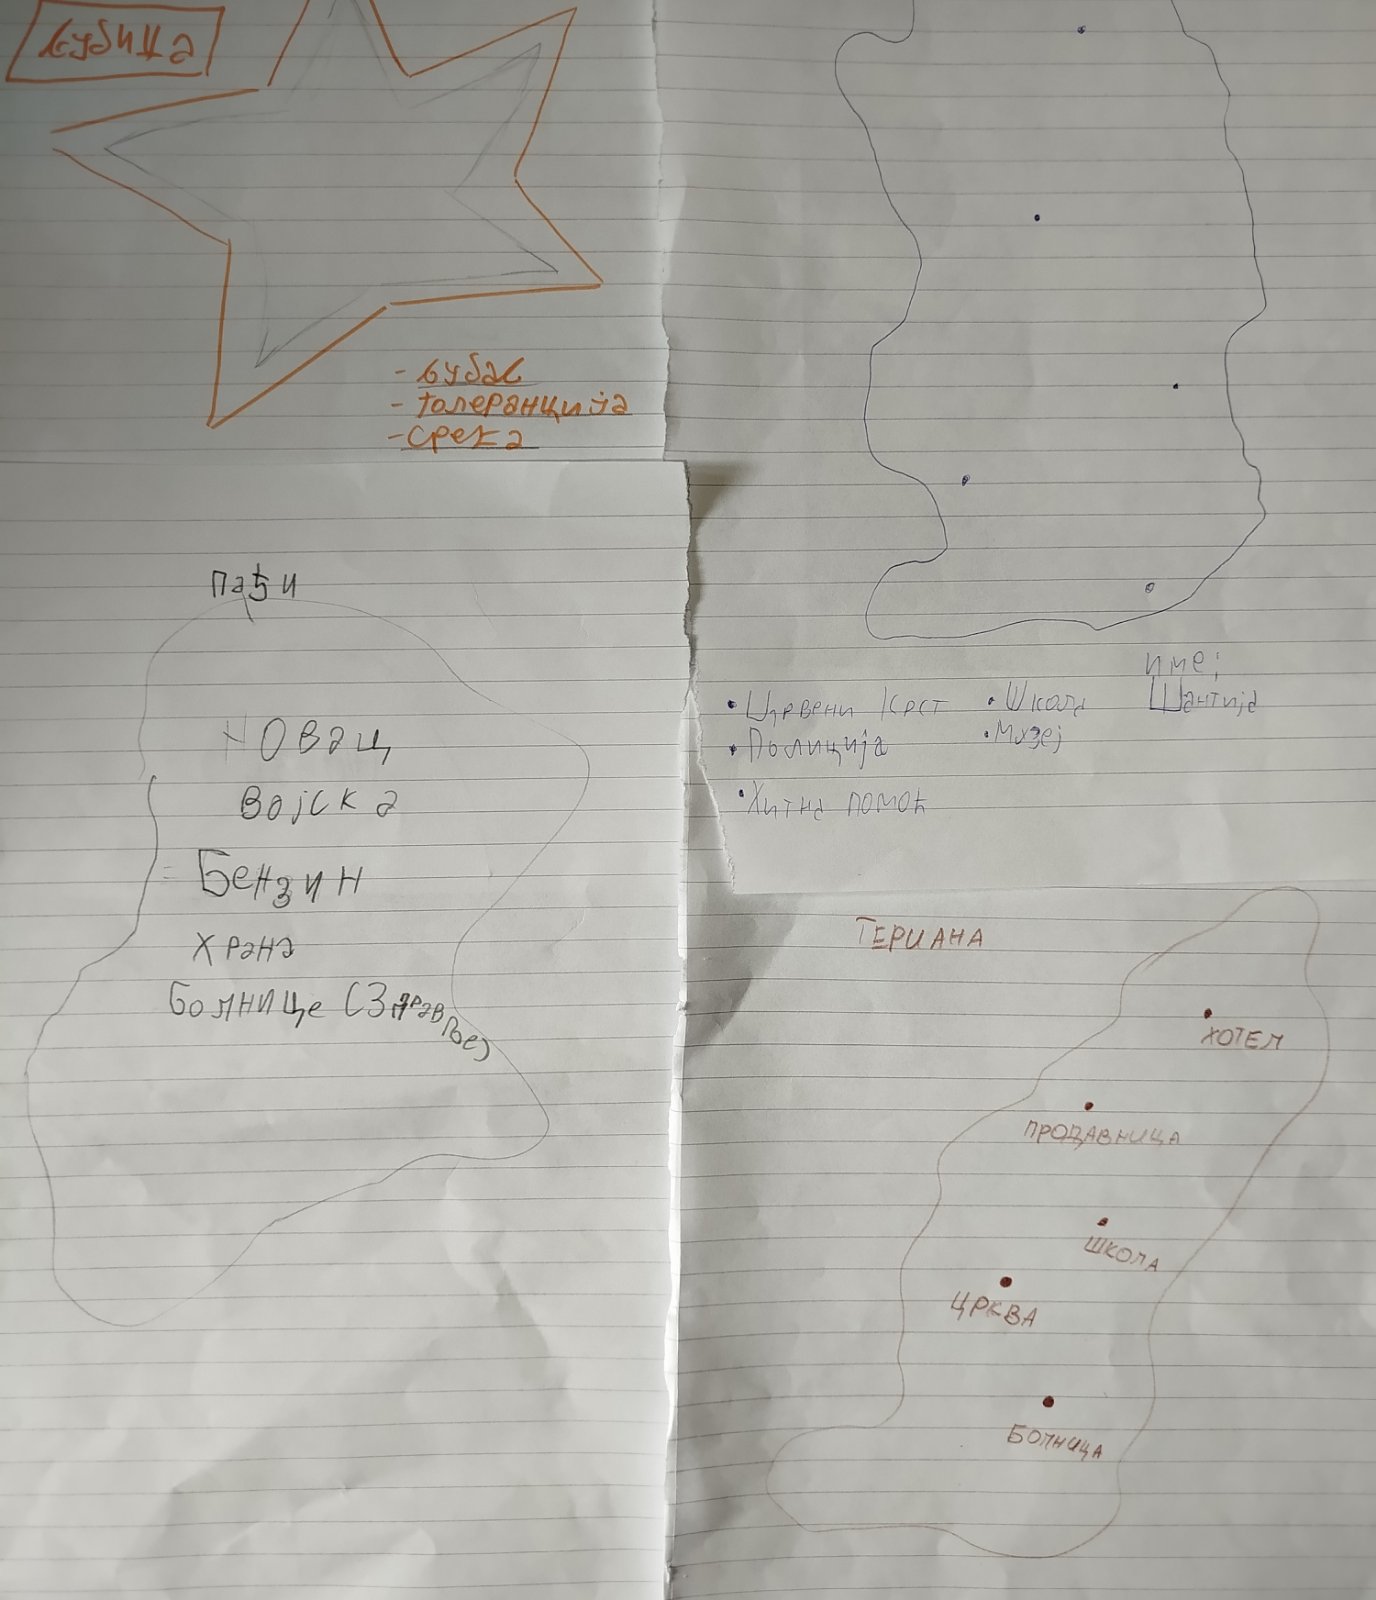 љубица
- љубав
- толеранција
- срећа
Пађи
Новац
Војска
Бензин
Храна
Болнице (Здравље)
име:
Шантија
• Црвени Крст
• Полиција
• Хитна помоћ
• Школа
• Музеј
ТЕРИАНА
ХОТЕЛ
ПРОДАВНИЦА
ШКОЛА
ЦРКВА
БОЛНИЦА